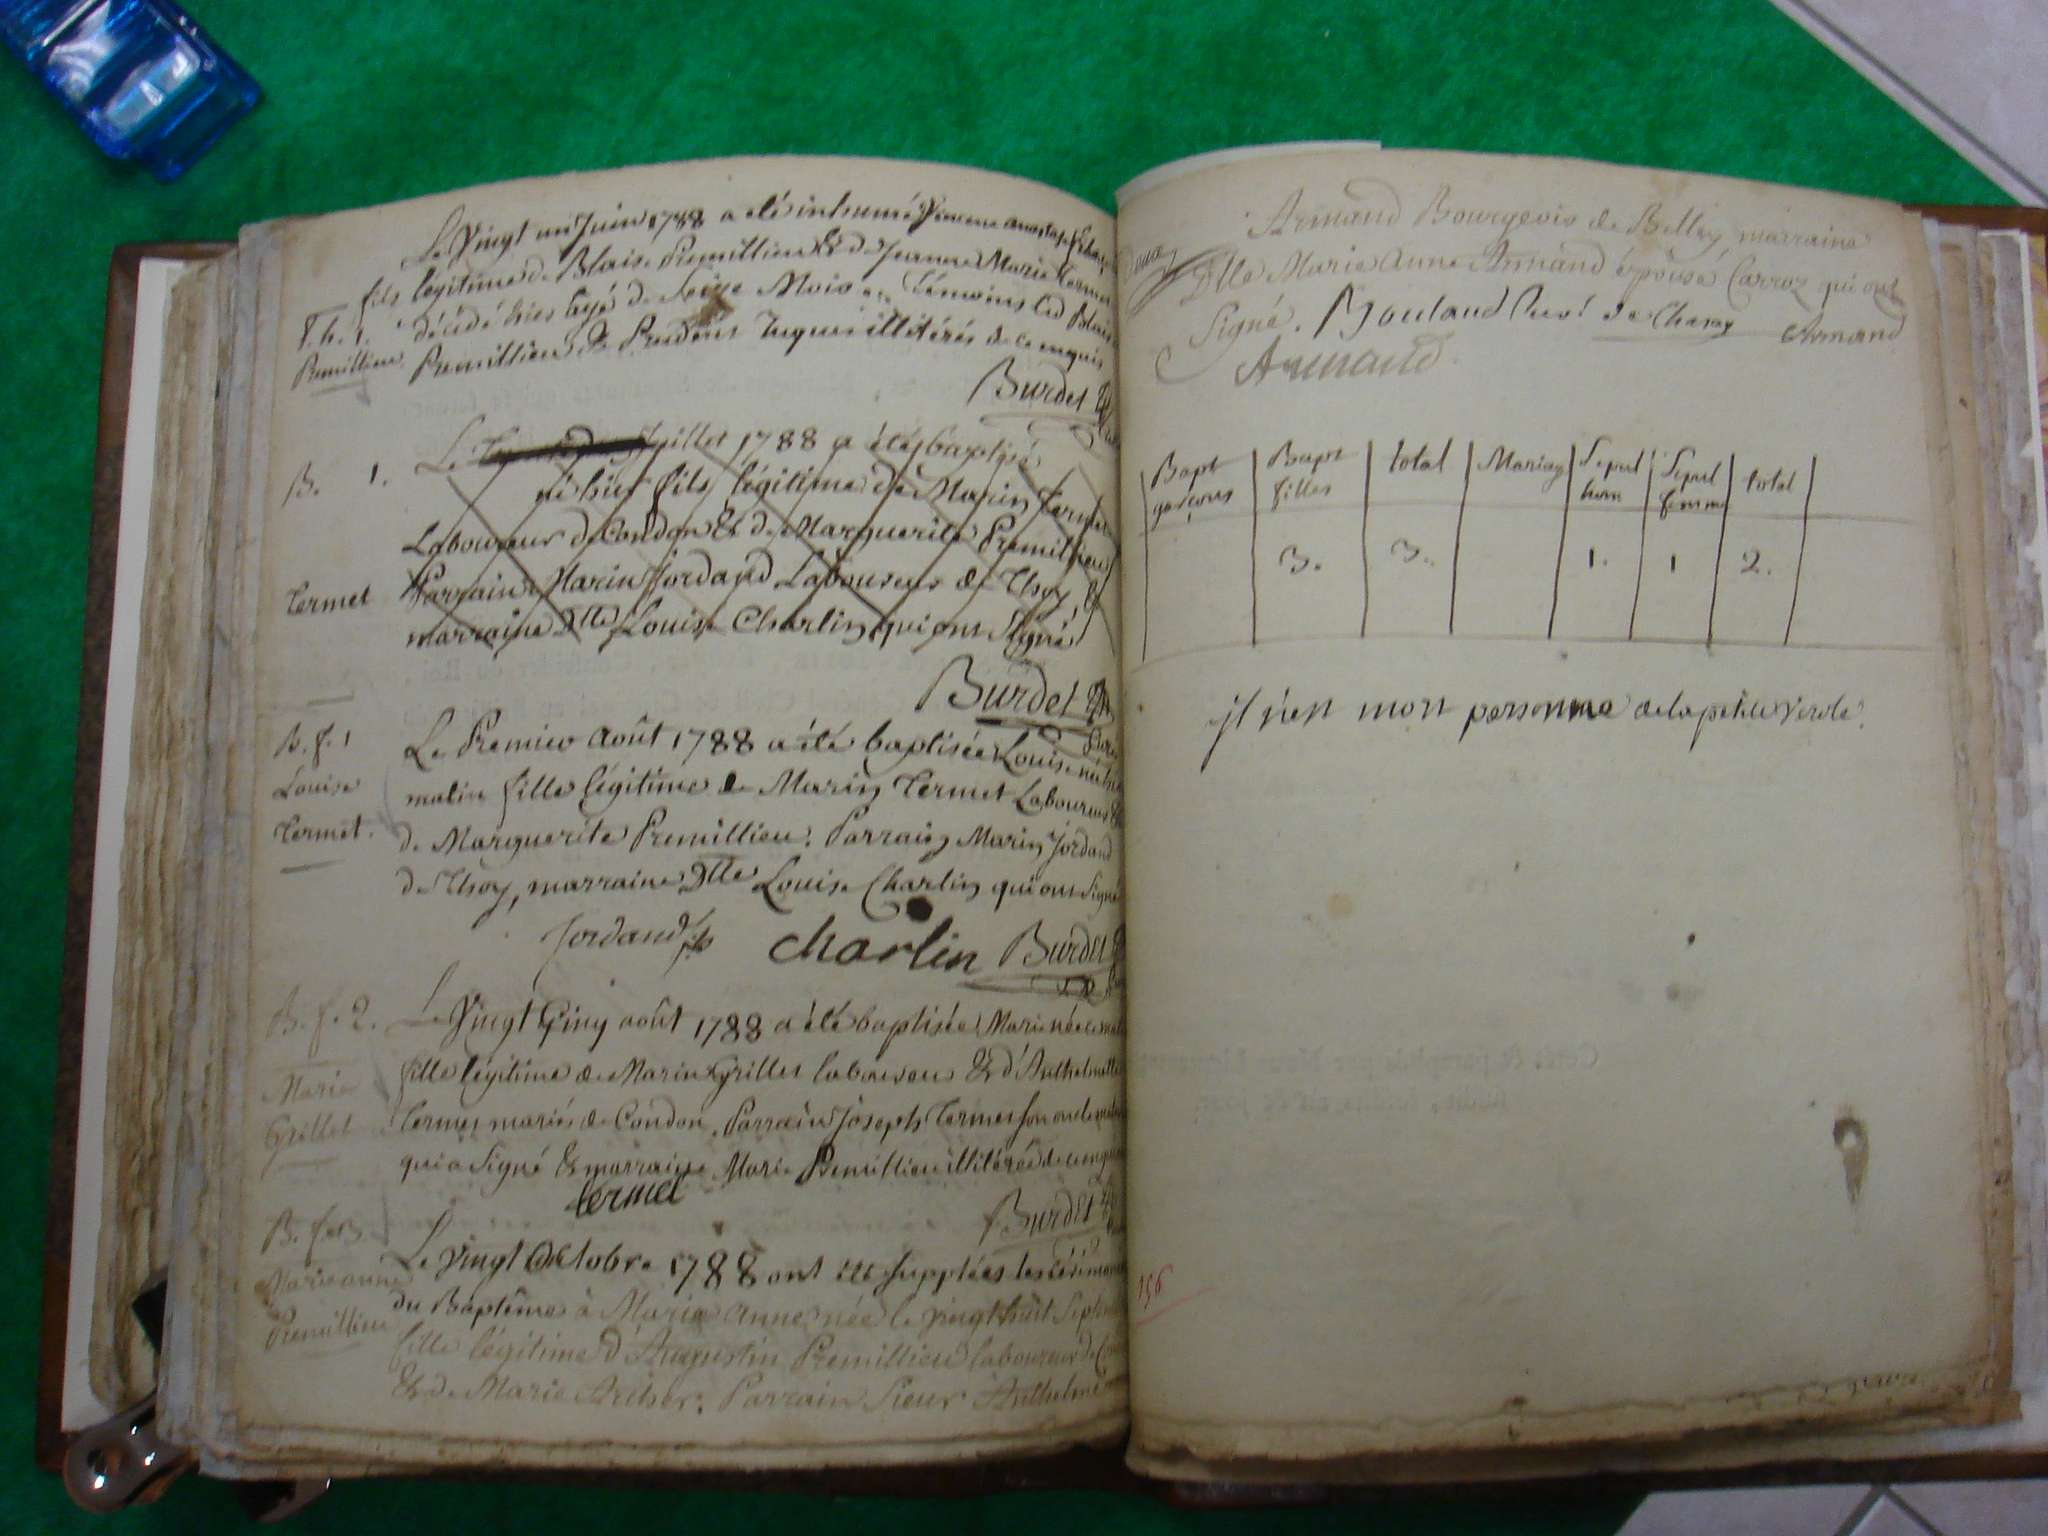 Le Vingt un Juin 1788 a été inhumé
fils légitime de Blaise Premillieu & de Jeanne Marie Termet
décédé hier âgé de Seize Mois Témoins led Blaise
Premillieu & Prudent illitérés de ce enquis
Premillieu
Burdet
B. 1.
Le Juillet 1788 a été baptisé
né hier fils légitime de Marin Termet
Laboureur de Condon & de Marguerite Premillieu
Parrain Marin Jordand Laboureur de Thoy, &
marraine Dlle Louise Charlin qui ont Signé
Termet
Burdet
B. f. 1
Louise
Termet.
Le Premier Août 1788 a été baptisée Louise née
matin fille légitime de Marin Termet Laboureur &
de Marguerite Premillieu. Parrain Marin Jordand
de Thoy, marraine Dlle Louise Charlin qui ont Signé
Jordand charlin Burdet
B. f. 2.
Marie
Grillet
Le Vingt Cinq août 1788 a été baptisée Marie née ce
fille légitime de Marin Grillet laboureur & d'Anthelmette
Termet mariés de Condon. Parrain Joseph Termet son oncle
qui a Signé & marraine Marie Premillieu illitérée de ce enquise
termet
Burdet
B. f. 3
Marieanne
Premillieu
Le vingt Octobre 1788 ont été supplées les cérémonies
du Baptême à Marie Anne née le vingt huit Septembre
fille légitime d'Augustin Premillieu laboureur de
& de Marie . Parrain Sieur Anthelme
Armand Bourgeois de Belley, marraine
Dlle Marie Anne Armand épouse Carroz qui ont
Signé. Bouland de Chazey Armand
Armand
Bapt garçons | Bapt filles | total | Mariag | Sepul hom | Sepul femme | total
3. 3. 1. 1 2.
il n'est mort personne de la petite verole.
156